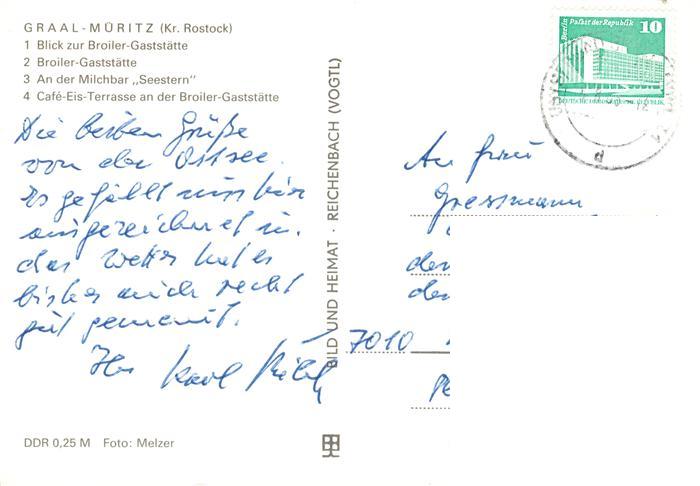 GRAAL-MÜRITZ (Kr. Rostock)
1 Blick zur Broiler-Gaststätte
2 Broiler-Gaststätte
3 An der Milchbar „Seestern"
4 Café-Eis-Terrasse an der Broiler-Gaststätte
Die besten Grüße
von der Ostsee.
Es gefällt uns hier
ausgezeichnet u.
das Wetter hat es
bisher auch recht
gut gemeint.
Ihr Karl
DDR 0,25 M Foto: Melzer
BILD UND HEIMAT · REICHENBACH (VOGTL)
Berlin Palast der Republik 10
DEUTSCHE DEMOKRATISCHE REPUBLIK
d
An Frau
Gressmann
7010